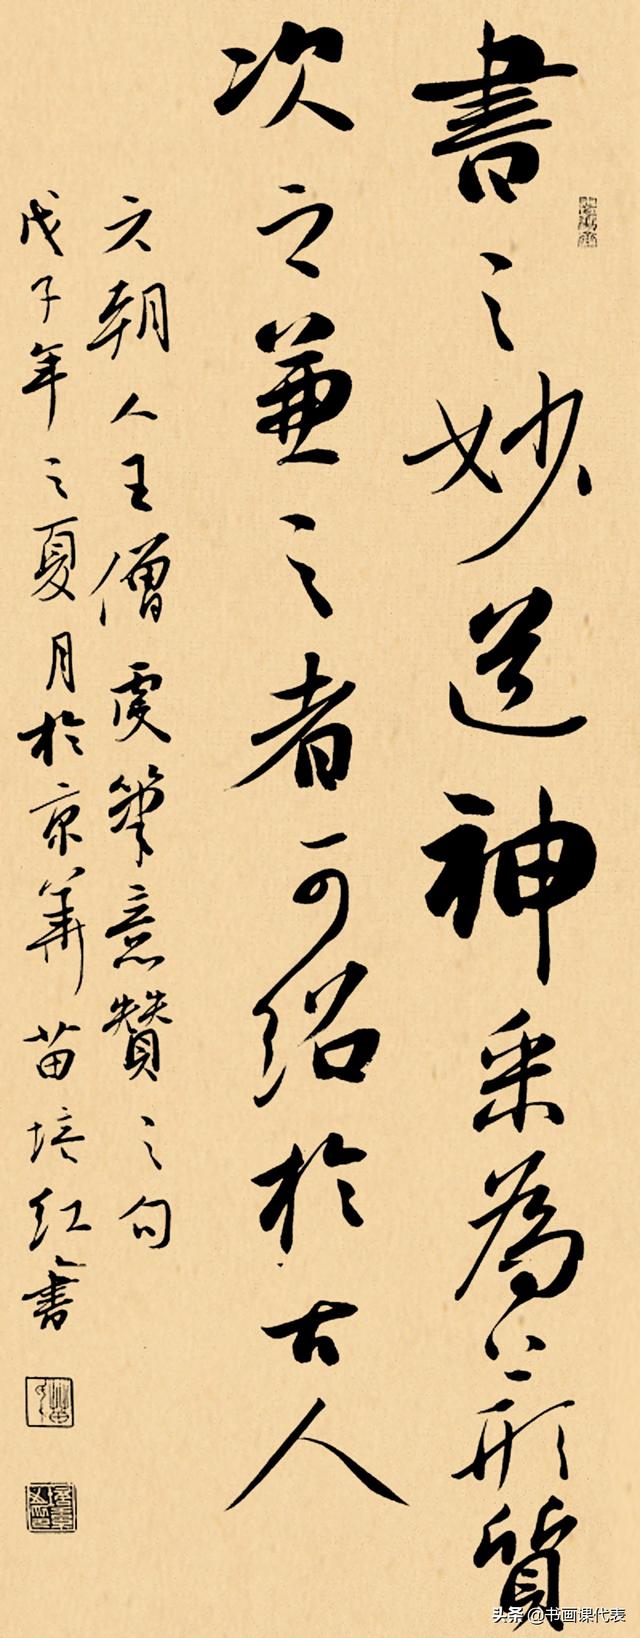 書之妙道神采為上形質
次之兼之者可紹於古人
六朝人王僧虔筆意贊之句
戊子年之夏月於京華苗培红書
头条 @书画课代表